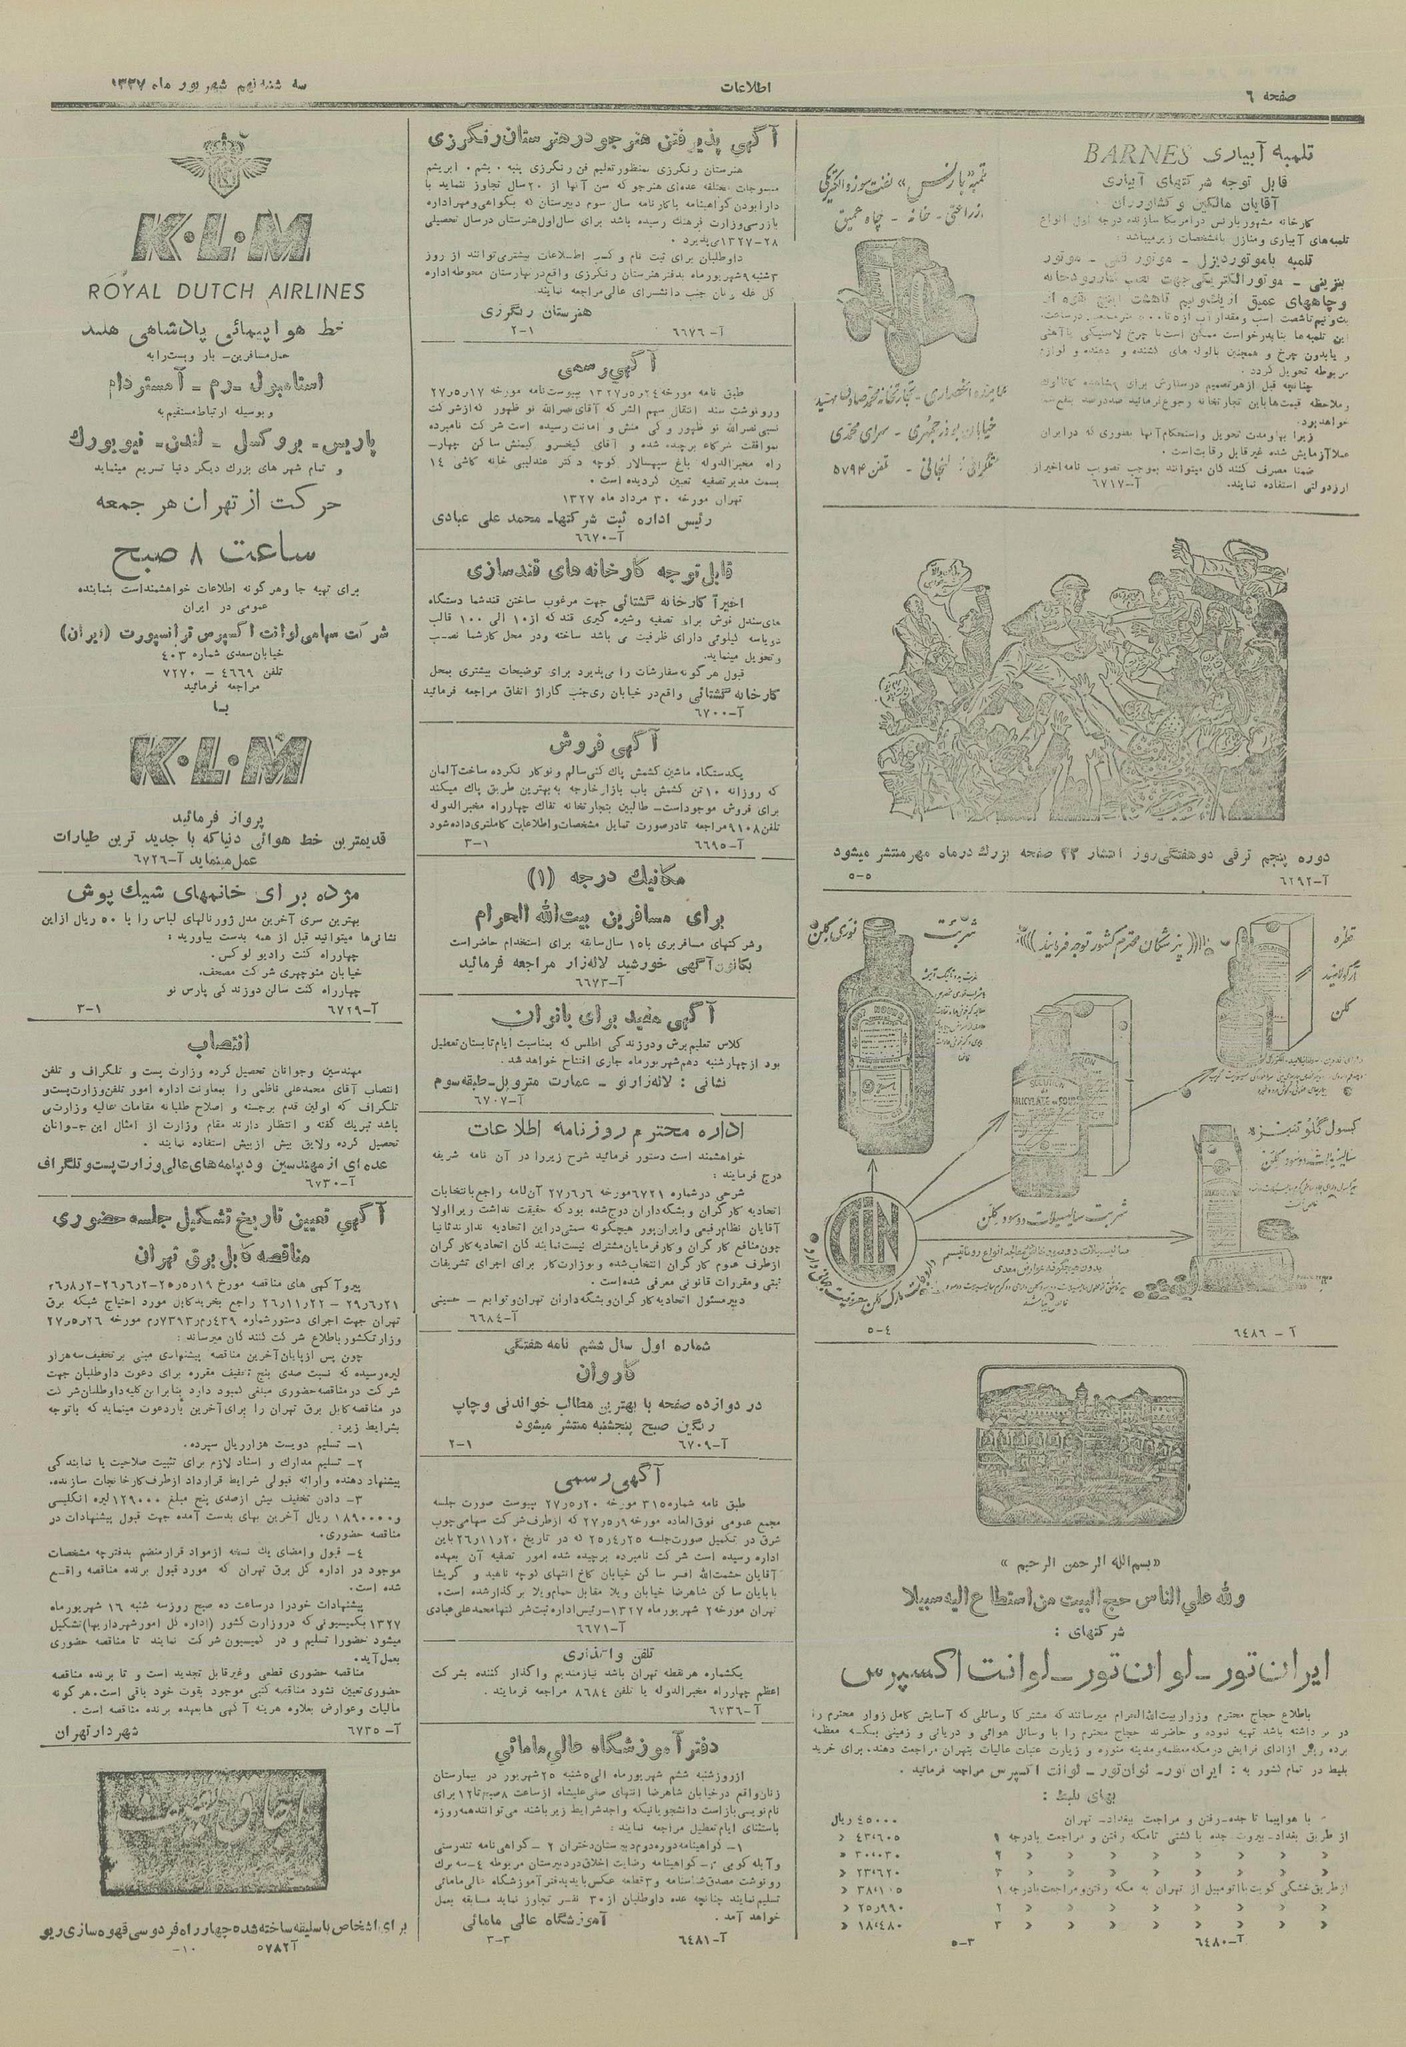 صفحه ٦
اطلاعات
سه شنبه نهم شهریور ماه ۱۳۲۷
تلمبه آبیاری BARNES
قابل توجه شرکتهای آبیاری
آقایان مالکین و کشاورزان
کارخانه مشهور بارنس در امریکا سازنده درجه اول انواع
تلمبه‌های آبیاری و منازل با مشخصات زیر میباشد:
بنزینی - موتور الکتریکی جهت نصب کنار رودخانه
این تلمبه‌ها بنا بدرخواست ممکن است با چرخ لاستیکی یا آهنی
و یا بدون چرخ و همچنین با لوله های کشنده و دهنده و لوازم
مربوطه تحویل گردد.
چنانچه قبل از هر تصمیم در سفارش برای مشاهده کاتالوک
و ملاحظه قیمتها باین تجارتخانه رجوع فرمائید صددرصد بنفع شما
خواهد بود.
زیرا بها و مدت تحویل و استحکام آنها بطوری که در ایران
عملا آزمایش شده غیر قابل رقابت است.
ضمنا مصرف کنندگان میتوانند بموجب تصویب نامه اخیر از
ارز دولتی استفاده نمایند. آ-٦٧١٧
تلمبه «بارنس» نفت سوز و الکتریکی
زراعتی - خانه - چاه عمیق
خیابان بوذرجمهری - سرای محمدی
تلگرافی: لنجانی - تلفن ۵۷۹۴
دوره پنجم ترقی دو هفتگی روز انتشار ۴۴ صفحه بزرگ در ماه مهر منتشر میشود
آ-٦٢٩٢ ۵-۵
پزشکان محترم کشور توجه فرمایند
شربت
قطره
گلن
کپسول گلوتنیزه
سالیسیلات دوسود گلن
شربت سالیسیلات دوسود گلن
SOLUTION
SALICYLATE DE SOUDE
آ - ٦٤٨٦ ۵-۴
«بسم الله الرحمن الرحیم»
ولله علی الناس حج البیت من استطاع الیه سبیلا
شرکتهای:
ایران تور - لوان تور - لوانت اکسپرس
باطلاع حجاج محترم و زوار بیت الله الحرام میرسانند که مشترکا وسائلی که آسایش کامل زوار محترم را
در بر داشته باشد تهیه نموده و حاضرند حجاج محترم را با وسائل هوائی و دریائی و زمینی بمکه معظمه
برده و پس از ادای فرایض در مکه معظمه و مدینه منوره و زیارت عتبات عالیات بتهران مراجعت دهند. برای خرید
بلیط در تمام کشور به: ایران تور - لوان تور - لوانت اکسپرس مراجعه فرمائید.
بهای بلیط:
با هواپیما تا جده - رفتن و مراجعت ببغداد - تهران ۴۵۰۰۰ ریال
از طریق بغداد - بیروت - جده با کشتی تا مکه رفتن و مراجعت با درجه ۱ ۴۳٬۶۰۵ »
» » » » » » » ۲ ۳۰٬۰۳۰ »
» » » » » » » ۳ ۲۳٬۶۲۰ »
از طریق خشکی کویت با اتومبیل از تهران به مکه رفتن و مراجعت با درجه ۱ ۳۸٬۱۰۵ »
» » » » » » » ۲ ۲۵٬۹۹۰ »
» » » » » » » ۳ ۱۸٬۴۸۰ »
آ-٦٤٨٠ ۵-۳
آگهی پذیرفتن هنرجو در هنرستان رنگرزی
هنرستان رنگرزی بمنظور تعلیم فن رنگرزی پنبه . پشم . ابریشم
منسوجات مختلفه عده‌ای هنرجو که سن آنها از ۲۰ سال تجاوز ننماید با
دارا بودن گواهینامه یا کارنامه سال سوم دبیرستان که بگواهی و مهر اداره
بازرسی وزارت فرهنگ رسیده باشد برای سال اول هنرستان در سال تحصیلی
۲۸-۱۳۲۷ می پذیرد.
داوطلبان برای ثبت نام و کسب اطلاعات بیشتری میتوانند از روز
۳ شنبه ۹ شهریور ماه بدفتر هنرستان رنگرزی واقع در نگارستان محوطه اداره
کل غله و نان جنب دانشسرای عالی مراجعه نمایند.
هنرستان رنگرزی
آ-٦٦٧٦ ۲-۱
آگهی رسمی
طبق نامه مورخه ۱۳۲۷ر۵ر۲۴ پیوست نامه مورخه ۲۷ر۵ر۱۷
و رونوشت سند انتقال سهم الشرکه آقای نصرالله نو ظهور که از شرکت
نسبی نصرالله نو ظهور و کی منش و امانت رسیده است شرکت نامبرده
بموافقت شرکاء برچیده شده و آقای کیخسرو کیمنش ساکن چهار-
راه مخبرالدوله باغ سپهسالار کوچه دکتر عندلیبی خانه کاشی ۱۴
بسمت مدیر تصفیه تعیین گردیده است.
تهران مورخه ۳۰ مرداد ماه ۱۳۲۷
رئیس اداره ثبت شرکتها - محمد علی عبادی
آ-٦٦٧٠
قابل توجه کارخانه های قندسازی
اخیراً کارخانه گشتائی جهت مرغوب ساختن قند شما دستگاه
های سندل فوش برای تصفیه و شیره گیری قند که از ۱۰ الی ۱۰۰ قالب
دو یا سه کیلوئی دارای ظرفیت می باشد ساخته و در محل کار شما نصب
و تحویل مینماید.
قبول هر گونه سفارشات را می‌پذیرد برای توضیحات بیشتری بمحل
کارخانه گشتائی واقع در خیابان ری جنب گاراژ اتفاق مراجعه فرمائید
آ-٦٧٠٠
آگهی فروش
یکدستگاه ماشین کشمش پاک کنی سالم و نو کار نکرده ساخت آلمان
که روزانه ۱۰ تن کشمش باب بازار خارجه به بهترین طریق پاک میکند
برای فروش موجود است - طالبین بتجارتخانه تفاک چهارراه مخبرالدوله
تلفن ۹۱۰۸ مراجعه تا در صورت تمایل مشخصات و اطلاعات کاملتری داده شود
آ-٦٦٩٥ ۳-۱
مکانیک درجه (۱)
برای مسافرین بیت الله الحرام
و شرکتهای مسافربری با ۱۵ سال سابقه برای استخدام حاضر است
بکانون آگهی خورشید لاله‌زار مراجعه فرمائید
آ-٦٦٧٣
آگهی مفید برای بانوان
کلاس تعلیم برش و دوزندگی اطلس که بمناسبت ایام تابستان تعطیل
بود از چهارشنبه دهم شهریور ماه جاری افتتاح خواهد شد.
نشانی: لاله‌زار نو - عمارت متروپل - طبقه سوم
آ-٦٧٠٧
اداره محترم روزنامه اطلاعات
خواهشمند است دستور فرمائید شرح زیر را در آن نامه شریفه
درج فرمایند:
شرحی در شماره ٦٧٢١ مورخه ۲۷ر۶ر۶ آن نامه راجع بانتخابات
اتحادیه کارگران و پیشه‌داران درج شده بود که حقیقت نداشت زیرا اولا
آقایان نظام رفیعی و ایران‌پور هیچگونه سمتی در این اتحادیه ندارند ثانیا
چون منافع کارگران و کارفرمایان مشترک نیست نمایندگان اتحادیه کارگران
از طرف عموم کارگران انتخاب شده و بوزارت کار برای اجرای تشریفات
ثبتی و مقررات قانونی معرفی شده است.
دبیر مسئول اتحادیه کارگران و پیشه‌داران تهران و توابع - حسینی
آ-٦٦٨٤
شماره اول سال ششم نامه هفتگی
کاروان
در دوازده صفحه با بهترین مطالب خواندنی و چاپ
رنگین صبح پنجشنبه منتشر میشود
آ-٦٧٠٩ ۲-۱
آگهی رسمی
طبق نامه شماره ۳۱۵ مورخه ۲۷ر۵ر۲۰ پیوست صورت جلسه
مجمع عمومی فوق‌العاده مورخه ۲۷ر۵ر۹ که از طرف شرکت سهامی چوب
شرق در تکمیل صورت جلسه ۲۵ر۴ر۲۵ که در تاریخ ۲۶ر۱۱ر۲۰ باین
اداره رسیده است شرکت نامبرده برچیده شده امور تصفیه آن بعهده
آقایان حشمت‌الله افسر ساکن خیابان کاخ انتهای کوچه ناهید و گریشا
بابایان ساکن شاهرضا خیابان ویلا مقابل حمام ویلا برگذار شده است.
تهران مورخه ۲ شهریور ماه ۱۳۲۷ - رئیس اداره ثبت شرکتها محمد علی عبادی
آ-٦٦٧١
تلفن واگذاری
یکشماره هر نقطه تهران باشد نیازمندیم واگذار کننده بشرکت
اعظم چهارراه مخبرالدوله یا تلفن ۸۶۸۴ مراجعه فرمایند.
دفتر آموزشگاه عالی مامائی
از روز شنبه ششم شهریور ماه الی ۵ شنبه ۲۵ شهریور در بیمارستان
زنان واقع در خیابان شاهرضا انتهای صفی علیشاه از ساعت ۸ صبح تا ۱۲ برای
نام نویسی باز است دانشجویانیکه واجد شرایط زیر باشند میتوانند همه روزه
باستثنای ایام تعطیل مراجعه نمایند:
۱- گواهینامه دوره دوم دبیرستان دختران ۲- گواهی نامه تندرستی
و آبله کوبی ۳- گواهینامه رضایت اخلاق در دبیرستان مربوطه ۴- سه برگ
رونوشت مصدق شناسنامه و ۳ قطعه عکس باید بدفتر آموزشگاه عالی مامائی
تسلیم نمایند چنانچه عده داوطلبان از ۳۰ نفر تجاوز نماید مسابقه بعمل
خواهد آمد. آموزشگاه عالی مامائی
آ-٦٤٨١ ۳-۳
K·L·M
ROYAL DUTCH AIRLINES
خط هواپیمائی پادشاهی هلند
حمل مسافرین - بار و پست را به
استامبول - رم - آمستردام
و بوسیله ارتباط مستقیم به
پاریس - بروکسل - لندن - نیویورک
و تمام شهر های بزرگ دیگر دنیا تسریع مینماید
حرکت از تهران هر جمعه
ساعت ۸ صبح
برای تهیه جا و هر گونه اطلاعات خواهشمند است بنماینده
عمومی در ایران
شرکت سهامی لوانت اکسپرس ترانسپورت (ایران)
خیابان سعدی شماره ۴۰۳
تلفن ۴۶۶۹ - ۷۲۷۰
مراجعه فرمائید
با
K·L·M
پرواز فرمائید
قدیمترین خط هوائی دنیا که با جدید ترین طیارات
عمل مینماید آ-٦٧٢٦
مژده برای خانمهای شیک پوش
بهترین سری آخرین مدل ژورنالهای لباس را با ۵۰ ریال از این
نشانی‌ها میتوانید قبل از همه بدست بیاورید:
چهارراه کنت رادیو لوکس.
خیابان منوچهری شرکت مصحف.
چهارراه کنت سالن دوزندگی پارس نو
آ-٦٧٢٩ ۳-۱
انتصاب
مهندسین و جوانان تحصیل کرده وزارت پست و تلگراف و تلفن
انتصاب آقای محمدعلی فاطمی را بمعاونت اداره امور تلفن وزارت پست و
تلگراف که اولین قدم برجسته و اصلاح طلبانه مقامات عالیه وزارتی
باشد تبریک گفته و انتظار دارند مقام وزارت از امثال این جوانان
تحصیل کرده و لایق بیش از پیش استفاده نمایند.
عده ای از مهندسین و دیپلمه های عالی وزارت پست و تلگراف
آ-٦٧٣٠
آگهی تعیین تاریخ تشکیل جلسه حضوری
مناقصه کابل برق تهران
تهران جهت اجرای دستور شماره ۴۳۹ر۷۳۹۳م مورخه ۲۷ر۵ر۲۶
وزارت کشور باطلاع شرکت کنندگان میرساند:
چون پس از پایان آخرین مناقصه پیشنهادی مبنی بر تخفیف سه هزار
لیره رسیده که نسبت صدی پنج تخفیف مقرره برای دعوت داوطلبان جهت
شرکت در مناقصه حضوری مبلغی کمبود دارد بنابراین کلیه داوطلبان شرکت
در مناقصه کابل برق تهران را برای آخرین بار دعوت مینماید که با توجه
بشرایط زیر:
۱- تسلیم دویست هزار ریال سپرده.
۲- تسلیم مدارک و اسناد لازم برای تثبیت صلاحیت یا نمایندگی
پیشنهاد دهنده و ارائه قبولی شرایط قرارداد از طرف کارخانجات سازنده.
۳- دادن تخفیف بیش از صدی پنج مبلغ ۱۲۹۰۰۰ لیره انگلیسی
و ۱۸۹۰۰۰۰ ریال آخرین بهای بدست آمده جهت قبول پیشنهادات در
مناقصه حضوری.
۴- قبول و امضای یک نسخه از مواد قرار منضم بدفترچه مشخصات
موجود در اداره کل برق تهران که مورد قبول برنده مناقصه واقع
شده است.
پیشنهادات خود را در ساعت ده صبح روز سه شنبه ۱۶ شهریور ماه
۱۳۲۷ بکمیسیونی که در وزارت کشور (اداره کل امور شهرداریها) تشکیل
میشود حضورا تسلیم و در کمیسیون شرکت نمایند تا مناقصه حضوری
بعمل آید.
مناقصه حضوری قطعی و غیر قابل تجدید است و تا برنده مناقصه
حضوری تعیین نشود مناقصه کتبی موجود بقوت خود باقی است. هر گونه
مالیات و عوارض بعلاوه هزینه آگهی ها بعهده برنده مناقصه است.
آ-٦٧٣٥ شهردار تهران
برای اشخاص با سلیقه ساخته شده چهارراه فردوسی قهوه سازی ریو
آ۵۷۸۲ ۱۰-